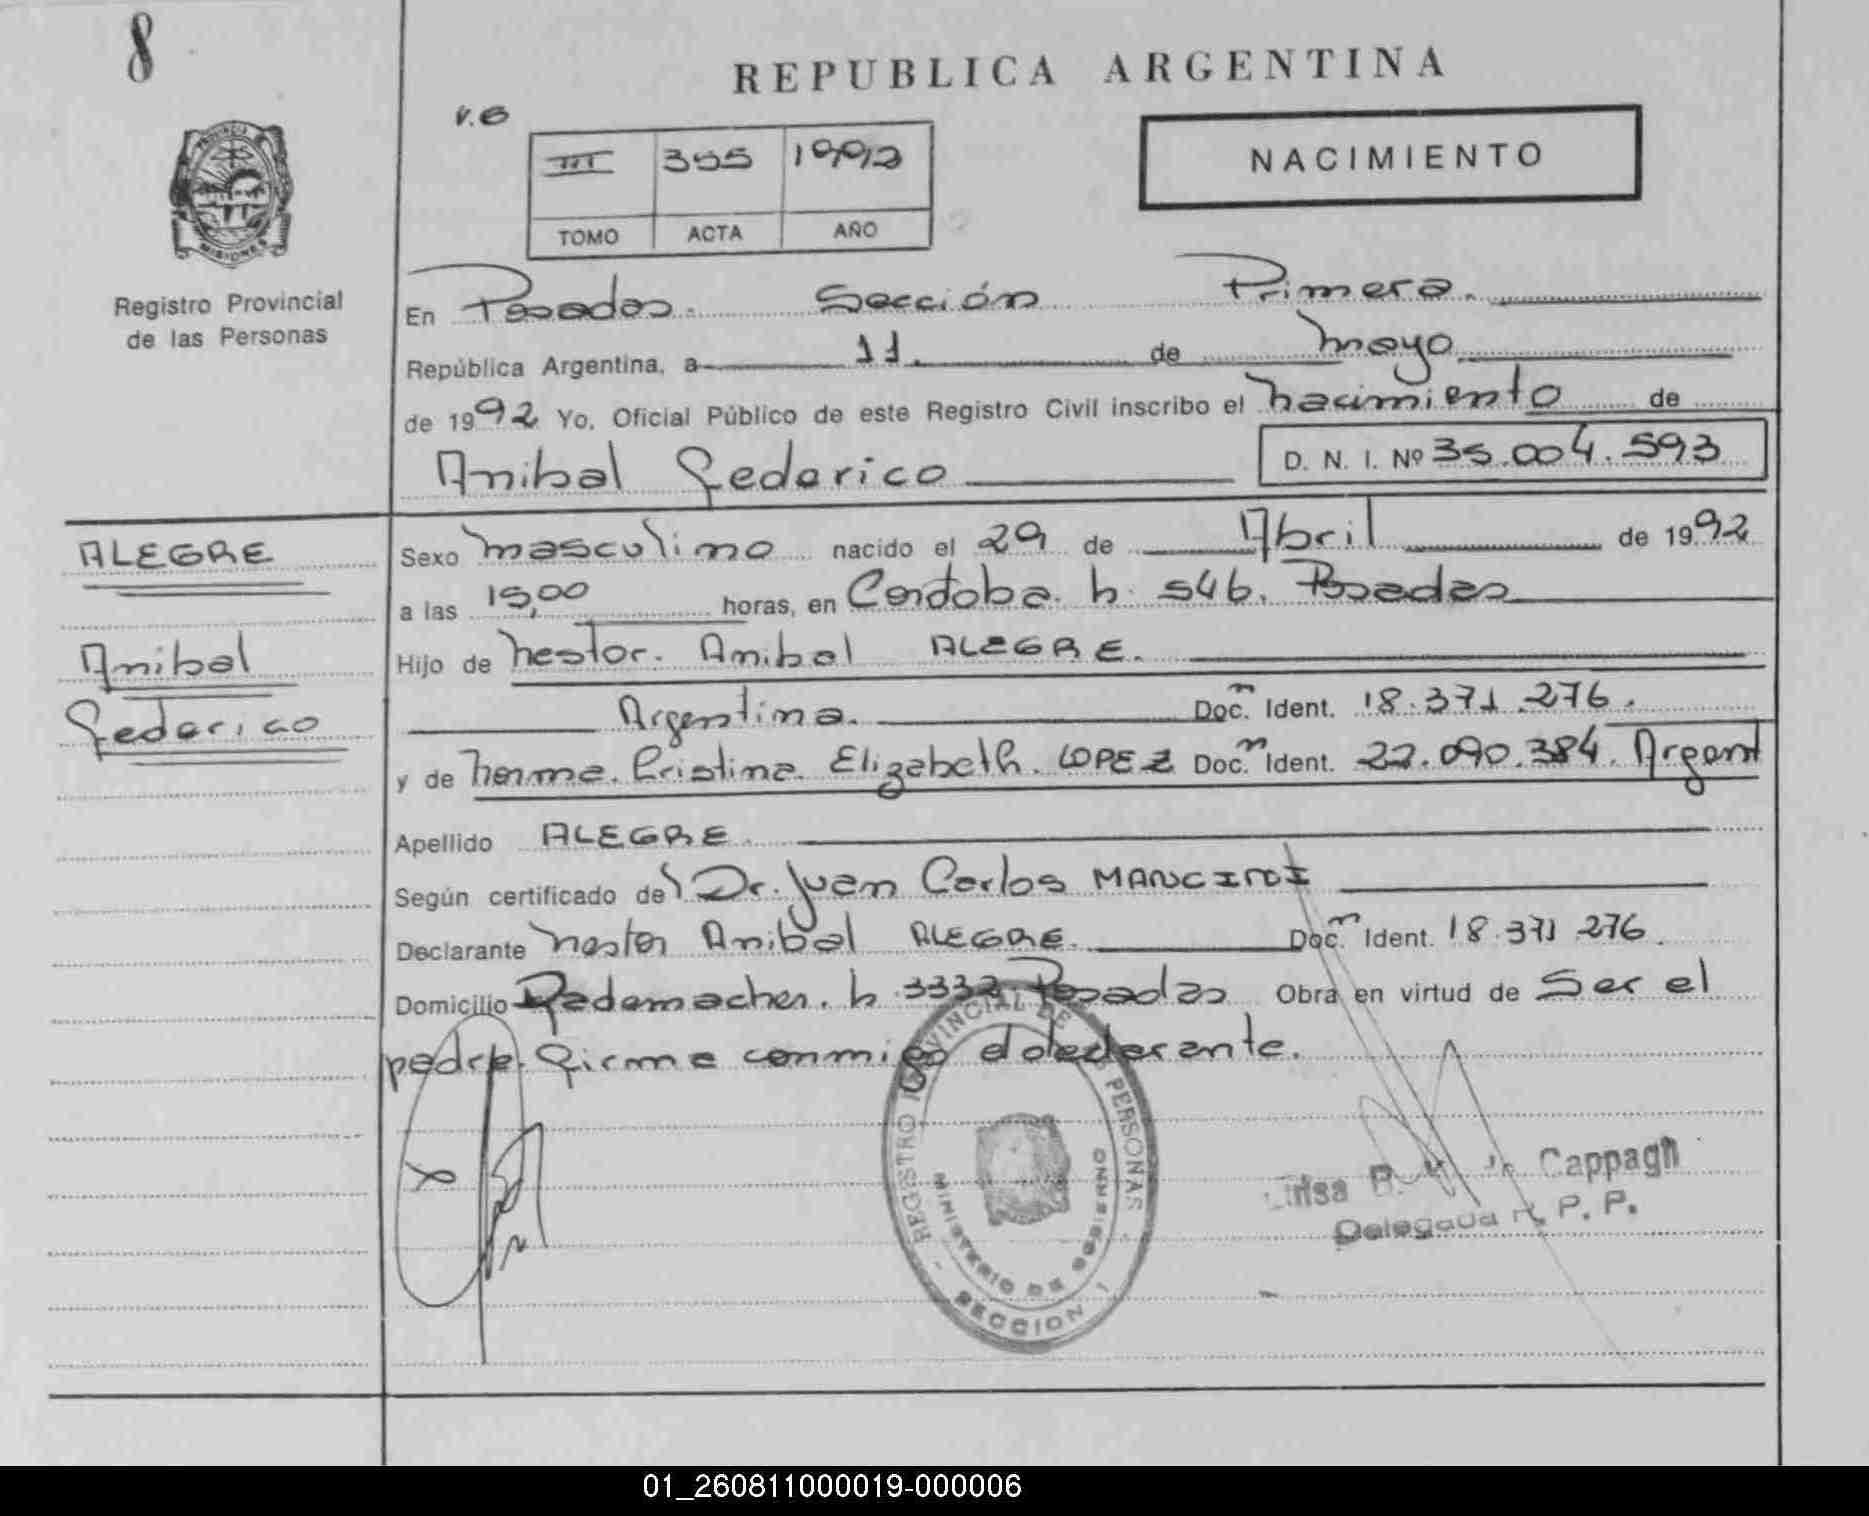 8
REPUBLICA ARGENTINA
V.B
III 355 1992
TOMO ACTA AÑO
NACIMIENTO
PROVINCIA DE
MISIONES
Registro Provincial
de las Personas
En Posadas. Sección Primera.
República Argentina, a 11. de mayo
de 1992 Yo, Oficial Público de este Registro Civil inscribo el nacimiento de
Anibal Federico D. N. I. Nº 35.004.593
ALEGRE
Anibal
Federico
Sexo masculino nacido el 29 de Abril de 1992
a las 15,00 horas, en Cordoba. n. 546. Posadas
Hijo de nestor. Anibal ALEGRE.
Argentina. Doc. Ident. 18.371.276.
y de norma. Cristina. Elizabeth. LOPEZ Doc. Ident. 22.090.384. Argent
Apellido ALEGRE.
Según certificado del Dr. Juan Carlos
Declarante nestor Anibal ALEGRE. Doc. Ident. 18.371.276.
Domicilio Rademacher. n. 3332 Posadas Obra en virtud de Ser el
padre. firma conmigo el declarante.
REGISTRO PROVINCIAL DE LAS PERSONAS
MINISTERIO DE GOBIERNO
SECCION 1
B. Cappagli
Delegada R. P. P.
01_260811000019-000006